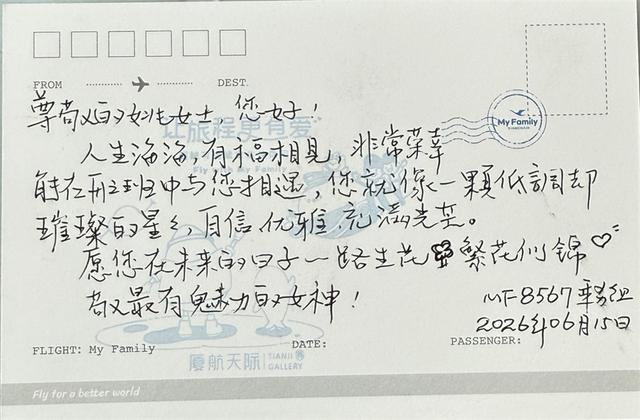 FROM DEST.
My Family
XIAMENAIR
尊敬的女士，您好！
让旅程更有爱
Fly with My Family
人生海海，有福相见，非常荣幸
能在乘班中与您相遇，您就像一颗低調却
璀璨的星星，自信、优雅、充满光芒。
愿您在未来的日子一路生花 繁花似锦
敬最有魅力的女神！
MF8567乘务组
2026年06月15日
FLIGHT: My Family DATE: PASSENGER:
厦航天际 TIANJI GALLERY
Fly for a better world